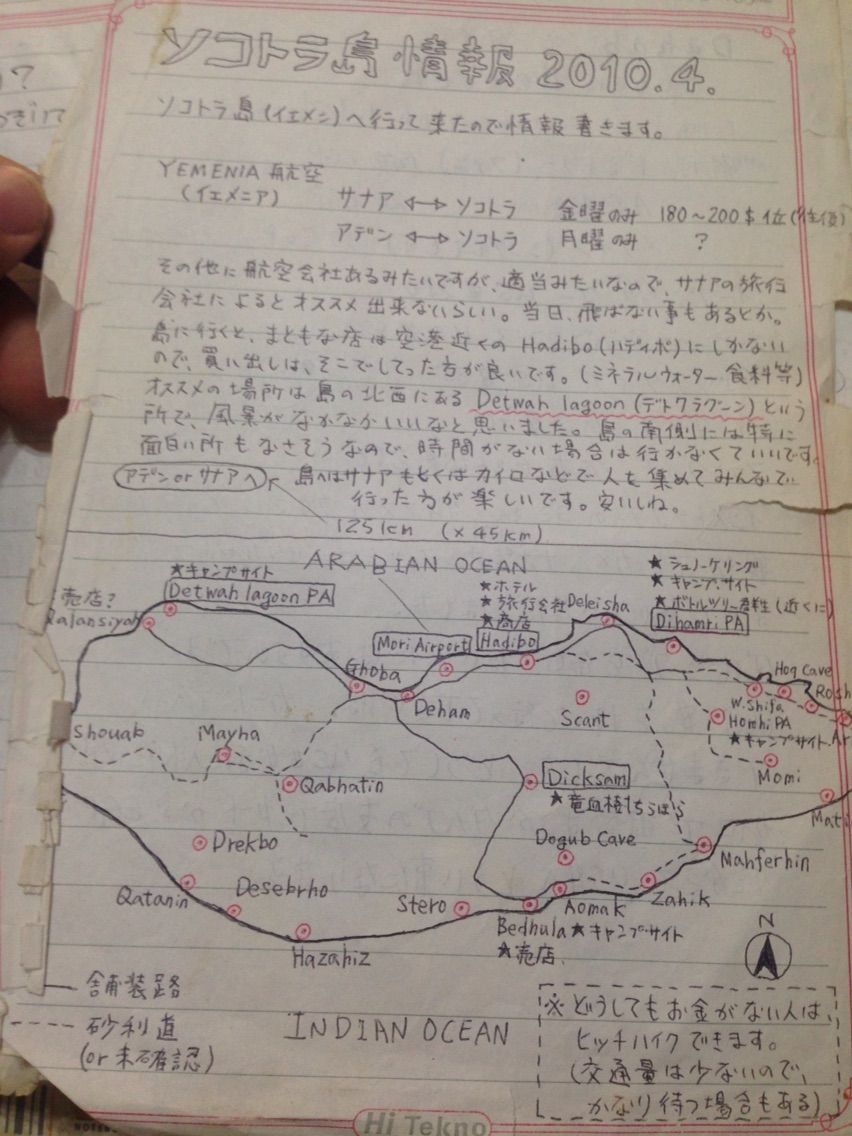 ソコトラ島 情報 2010.4.
ソコトラ島(イエメン)へ行って来たので情報書きます。
YEMENIA 航空
(イエメニア)
サナア ↔ ソコトラ 金曜のみ 180〜200$位(往復)
アデン ↔ ソコトラ 月曜のみ ?
その他に航空会社あるみたいですが、適当みたいなので、サナアの旅行
会社によるとオススメ出来ないらしい。当日、飛ばない事もあるとか。
島に行くと、まともな店は空港近くのHadibo(ハディボ)にしかない
ので、買い出しは、そこでしてった方が良いです。(ミネラルウォーター食料等)
オススメの場所は島の北西にあるDetwah lagoon(デトワラグーン)という
所で、風景がなかなかいいなと思いました。島の南側には特に
面白い所もなさそうなので、時間がない場合は行かなくていいです。
アデン or サナアへ
島へはサナアもしくはカイロなどで人を集めてみんなで
行った方が楽しいです。安いしね。
125km (×45km)
ARABIAN OCEAN
売店?
★キャンプサイト
Detwah lagoon PA
Qalansiyah
Mori Airport
★ホテル
★旅行会社
★商店
Hadibo
Deleisha
★シュノーケリング
★キャンプサイト
★ボトルツリー群生(近くに)
Dihamri PA
Ghoba
Deham
Scant
Hoq Cave
Rosh
W.Shifa
Homhi PA
★キャンプサイト
Ar
Momi
Shouab
Mayha
Qabhatin
Dicksam
★竜血樹ちらほら
Mati
Drekbo
Dogub Cave
Mahferhin
Qatanin
Desebrho
Stero
Aomak
★キャンプサイト
Zahik
Bedhula
★売店
Hazahiz
N
舗装路
砂利道
(or 未確認)
INDIAN OCEAN
※どうしてもお金がない人は、
ヒッチハイクできます。
(交通量は少ないので、
かなり待つ場合もある)
Hi Tekno